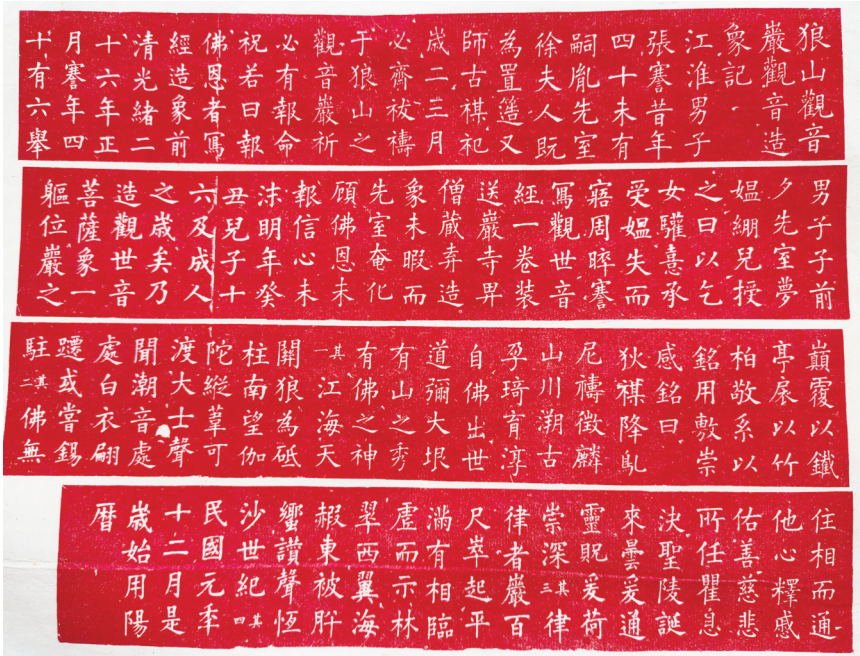 狼山觀音
巖觀音造
象記
江淮男子
張謇昔年
四十未有
嗣胤先室
徐夫人既
為置簉又
師古禖祀
歲二三月
必齊祓禱
于狼山之
觀音巖祈
必有報命
祝若曰報
佛恩者寫
經造象前
清光緒二
十六年正
月謇年四
十有六舉
男子子前
夕先室夢
媼綳兒授
之曰以乞
女驩憙承
受媼失而
寤周晬謇
寫觀世音
經一卷裝
送巖寺畀
僧藏弆造
象未暇而
先室奄化
顧佛恩未
報信心未
沬明年癸
丑兒子十
六及成人
之歲矣乃
造觀世音
菩薩象一
軀位巖之
巔覆以鐵
亭扆以竹
柏敬系以
銘用敷崇
感銘曰
狄禖降鳦
尼禱徵麟
山川溯古
孕琦育淳
自佛出世
道彌大垠
有山之秀
有佛之神
其一江海天
關狼為砥
柱南望伽
陀縱葦可
渡大士聲
聞潮音處
處白衣翩
躚或嘗錫
駐其二佛無
住相而通
他心釋慼
佑善慈悲
所任瞿息
決聖陵誕
來曇爰通
靈貺爰荷
崇深其三律
律者巖百
尺崒起平
滿有相臨
虛而示林
翠西翼海
赮東被肸
蠁讚聲恆
沙世紀其四
民國元秊
十二月是
歲始用陽
暦